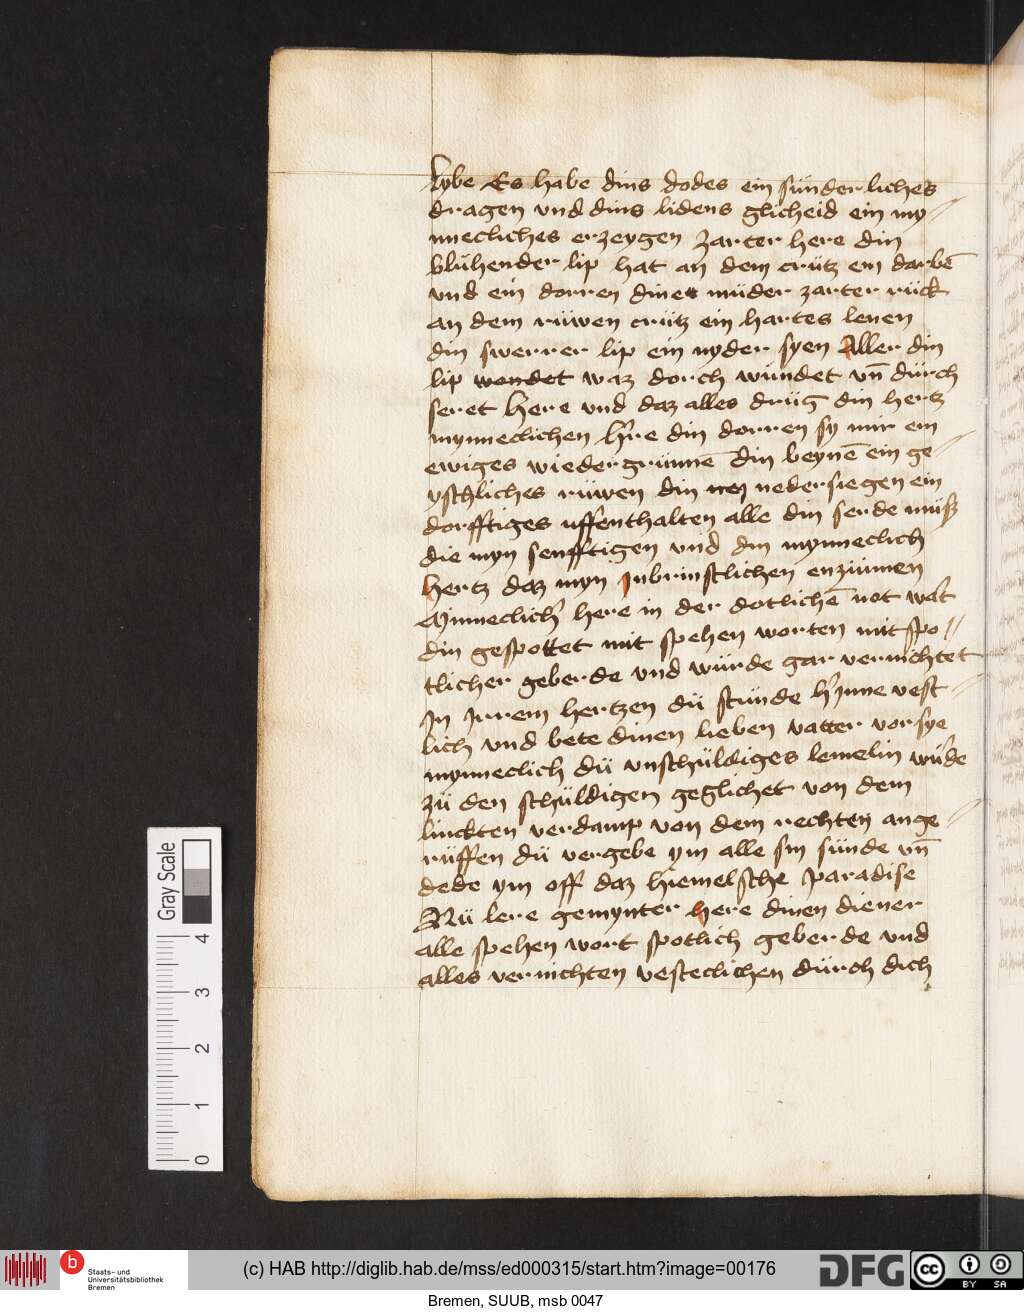 lybe Es habe dins dodes ein sünderliches
dragen vnd dins lidens glicheid ein my-
nnecliches erzeygen zarter here din
blühender lip hat an dem crütz em darbē
vnd ein dorren dines müder zarter rück
an dem rüwen crütz ein hartes lenen
din swerrer lip ein nyder syen Aller din
lip wondet waz dorch wündet vn̄ dürch
seret here vnd daz alles drüg din hertz
mynneclichen h're din dorren sy mir em
ewiges wiedergrünnē din beynē ein ge-
yschliches rüwen din nedersiegen ein
dorfftiges uffenthalten alle din serde müß
die myn senfftigen vnd din mynneclich
hertz daz myn Inbrinstlichen enzünnen
Minneclich' here in der dotlichē not wa't
din gespottet mit spehen worten mit spo//
tlicher geberde vnd würde gar vernichtet
In Irrem hertzen dü stünde h'Inne vest-
lich vnd bete dinen lieben vatter vor sye
mynneclich dü vnschüldiges lemelin wü'de
zü den schüldigen geglichet von dem
linckten verdamp von dem rechten ange-
rüffen dü vergebe ym alle sin sünde vn̄
dede ym off daz hiemelsche paradise
Nü lere gemynter here dinen diener
alle spehen wort spotlich geberde vnd
alles vernichten vesteclichen dürch dich
Gray Scale
0 1 2 3 4
b
Staats- und
Universitätsbibliothek
Bremen
(c) HAB http://diglib.hab.de/mss/ed000315/start.htm?image=00176
DFG
cc BY SA
Bremen, SUUB, msb 0047